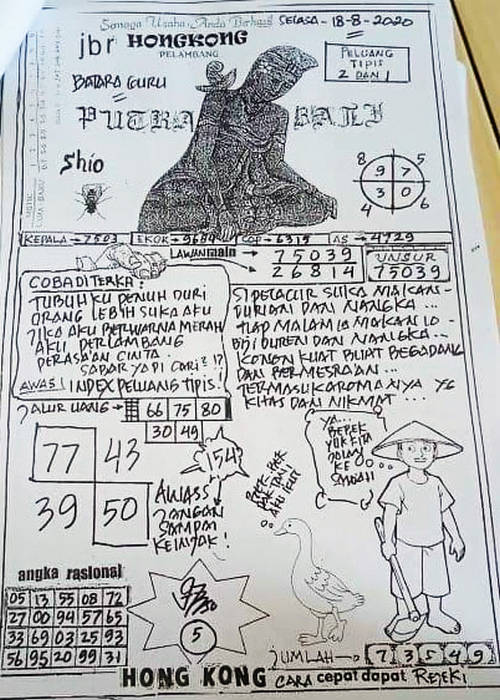 Semoga Usaha Anda Berhasil SELASA - 18-8-2020
jbr HONGKONG
PELAMBANG
PELUANG
TIPIS
2 DAN 1
BATARA GURU
PUTRA BALI
Shio
8 7 5
9
3 0
4 6
KEPALA → 7503 EKOR → 9684 COP → 6315 AS → 4729
LAWAN main → 75039
26814
UNSUR
75039
COBA DITERKA:
TUBUH KU PENUH DURI
ORANG LEBIH SUKA AKU
JIKA AKU BERWARNA MERAH
AKU PERLAMBANG
PERASAAN CINTA.
SABAR YA PI CARI 2 !?
AWAS! INDEX PELUANG TIPIS!
SI PETACUR SUKA MAKAN-
DURIAN DAN NANGKA...
TIAP MALAM IA MAKAN 10-
BIJI DUREN DAN NANGKA...
KONON KUAT BUAT BEGADANG
DAN BERMESRAAN...
TERMASUK AROMA NYA YG
KHAS DAN NIKMAT...
JALUR UANG → 66 75 80
30 49
154
77 43
39 50
AWASS
JANGAN
SAMPAI
KEINJAK!
PAK TANI
AKU IKUT
YA...
BEBEK
YUK KITA
KE
SAWAH
angka rasional
05 13 55 08 72
27 00 94 57 65
33 69 03 25 93
56 95 20 99 31
5
JUMLAH → 7 3 5 4 9
HONG KONG CARA cepat dapat REJEKI